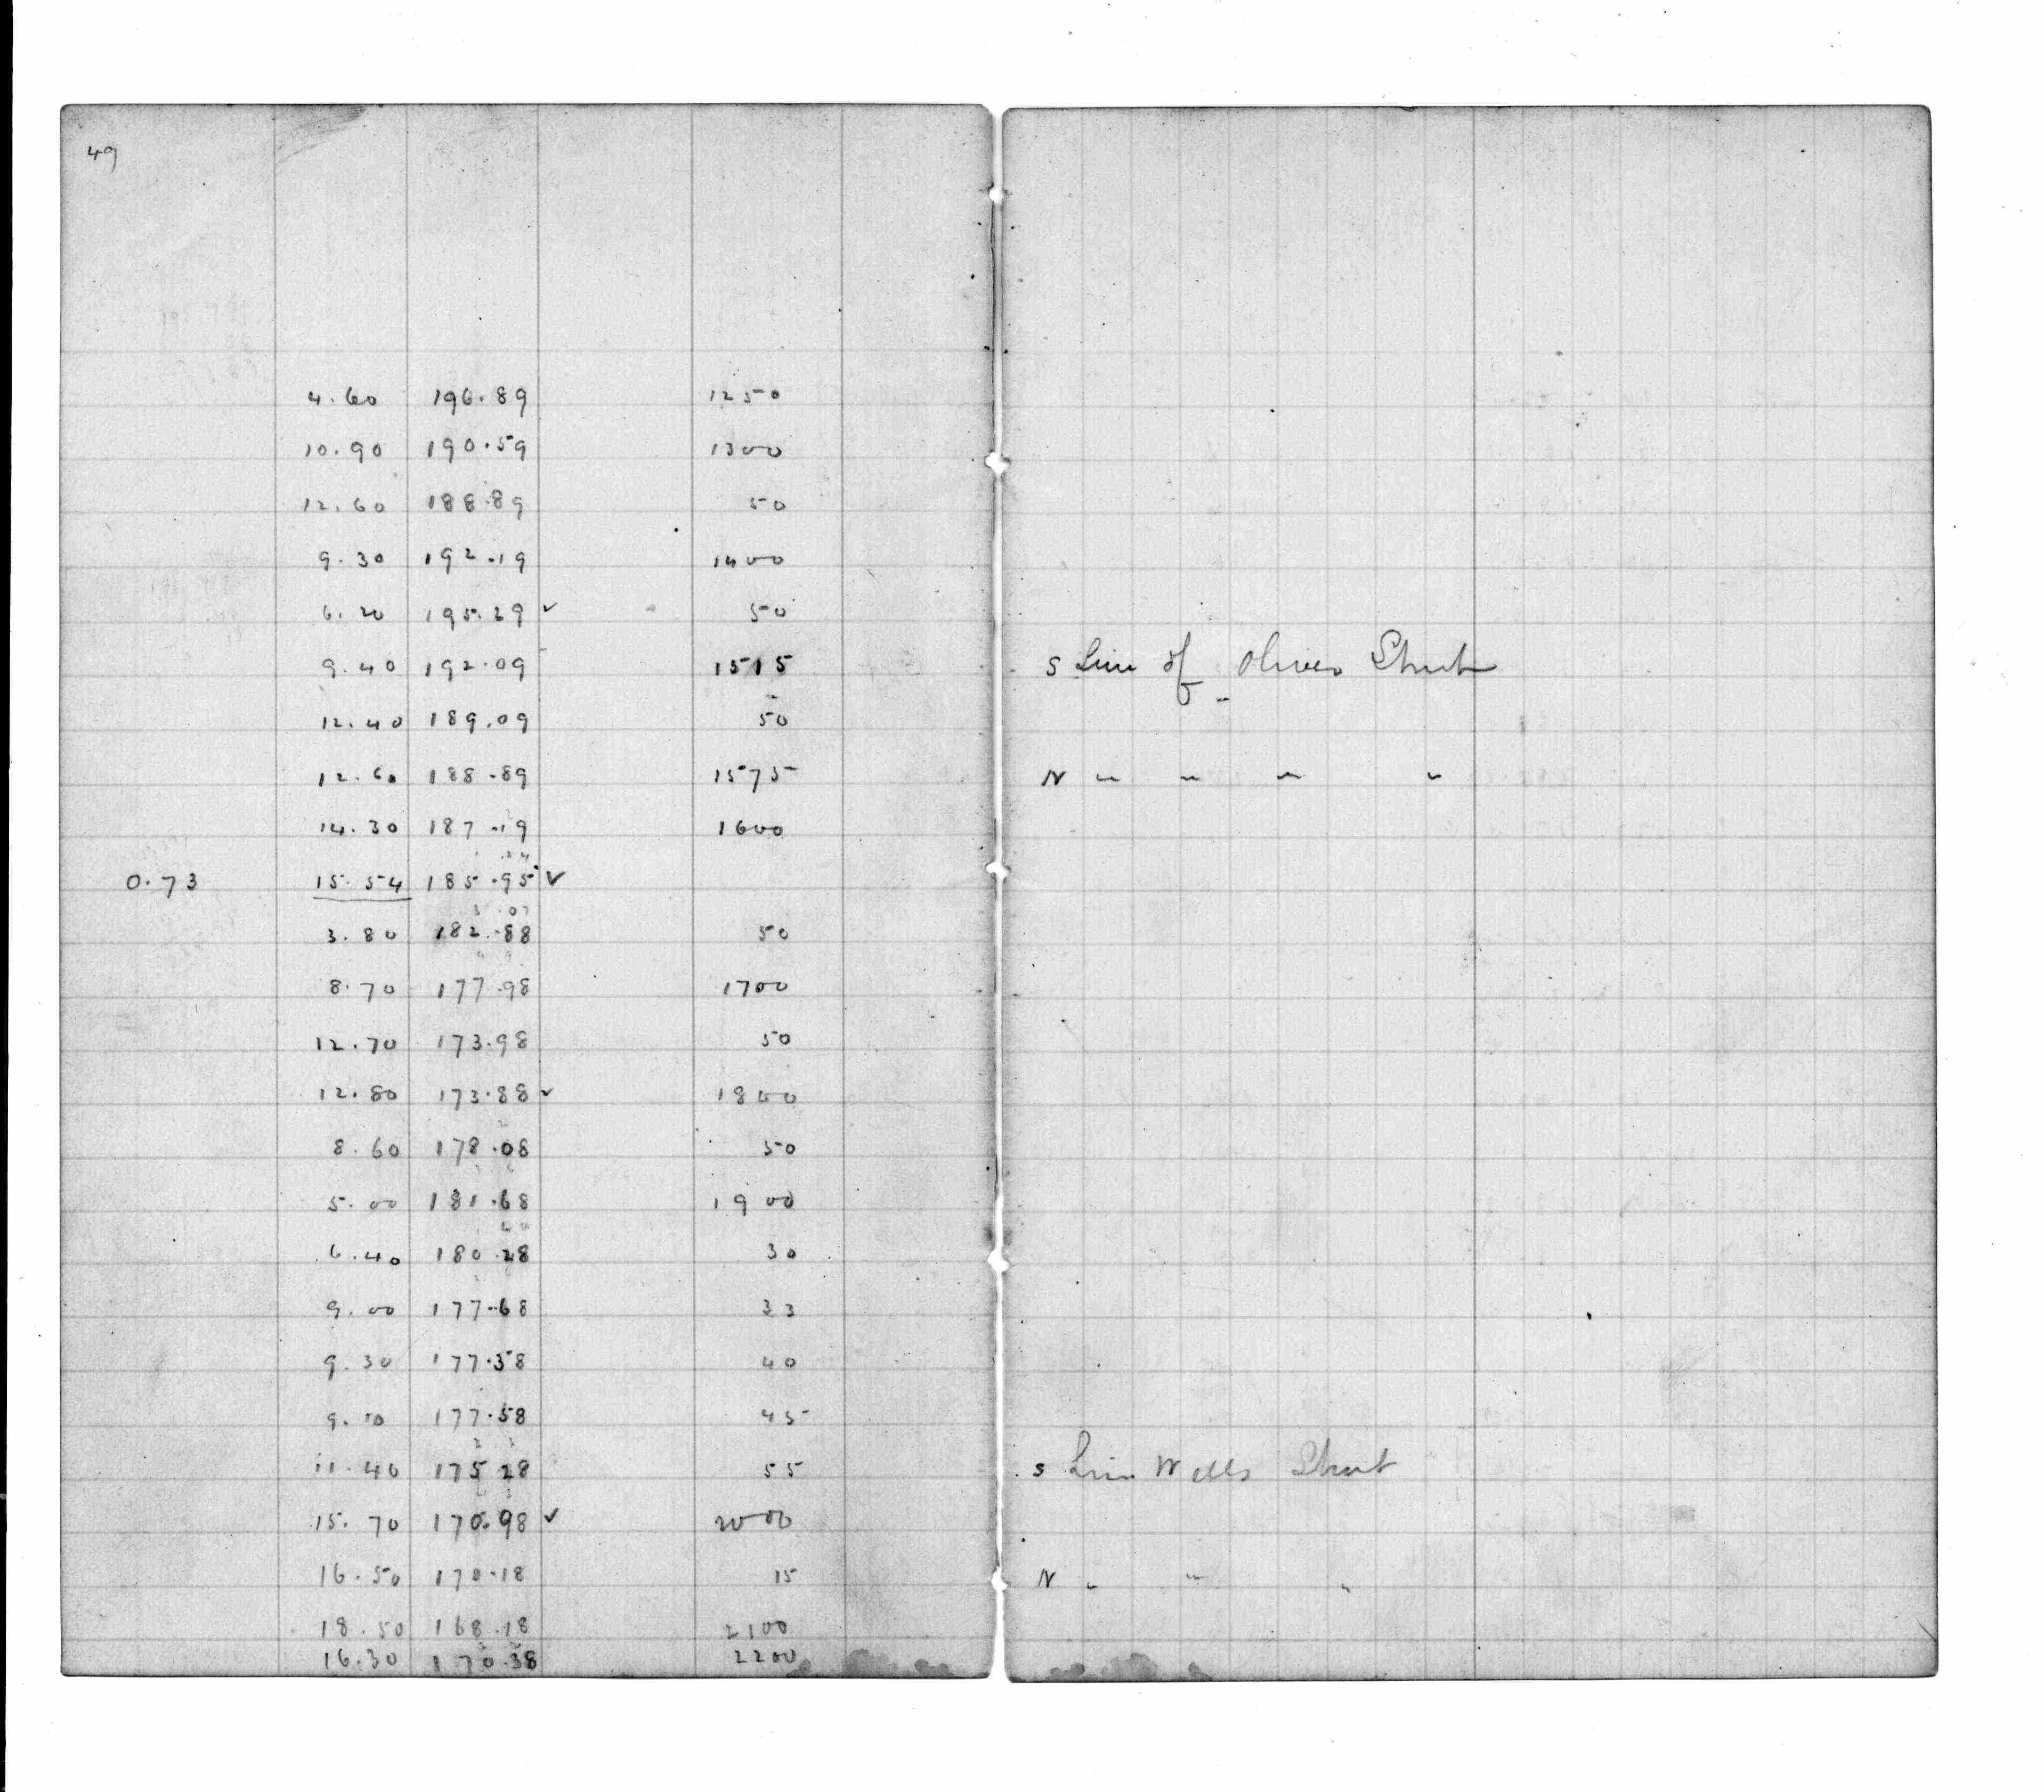 49
4.60 196.89 1250
10.90 190.59 1300
12.60 188.89 50
9.30 192.19 1400
6.20 195.29 ✓ 50
9.40 192.09 1515 S Line of Oliver Street
12.40 189.09 50
12.60 188.89 1575 N " " " "
14.30 187.19 1600
0.73 15.54 185.95 ✓
3.80 182.88 50
8.70 177.98 1700
12.70 173.98 50
12.80 173.88 ✓ 1800
8.60 178.08 50
5.00 181.68 1900
6.40 180.28 30
9.00 177.68 33
9.30 177.38 40
177.58 45
11.40 175.28 55 S Line Wells Street
15.70 170.98 ✓ 2000
16.50 170.18 15 N " " "
18.50 168.18 2100
16.30 170.38 2200